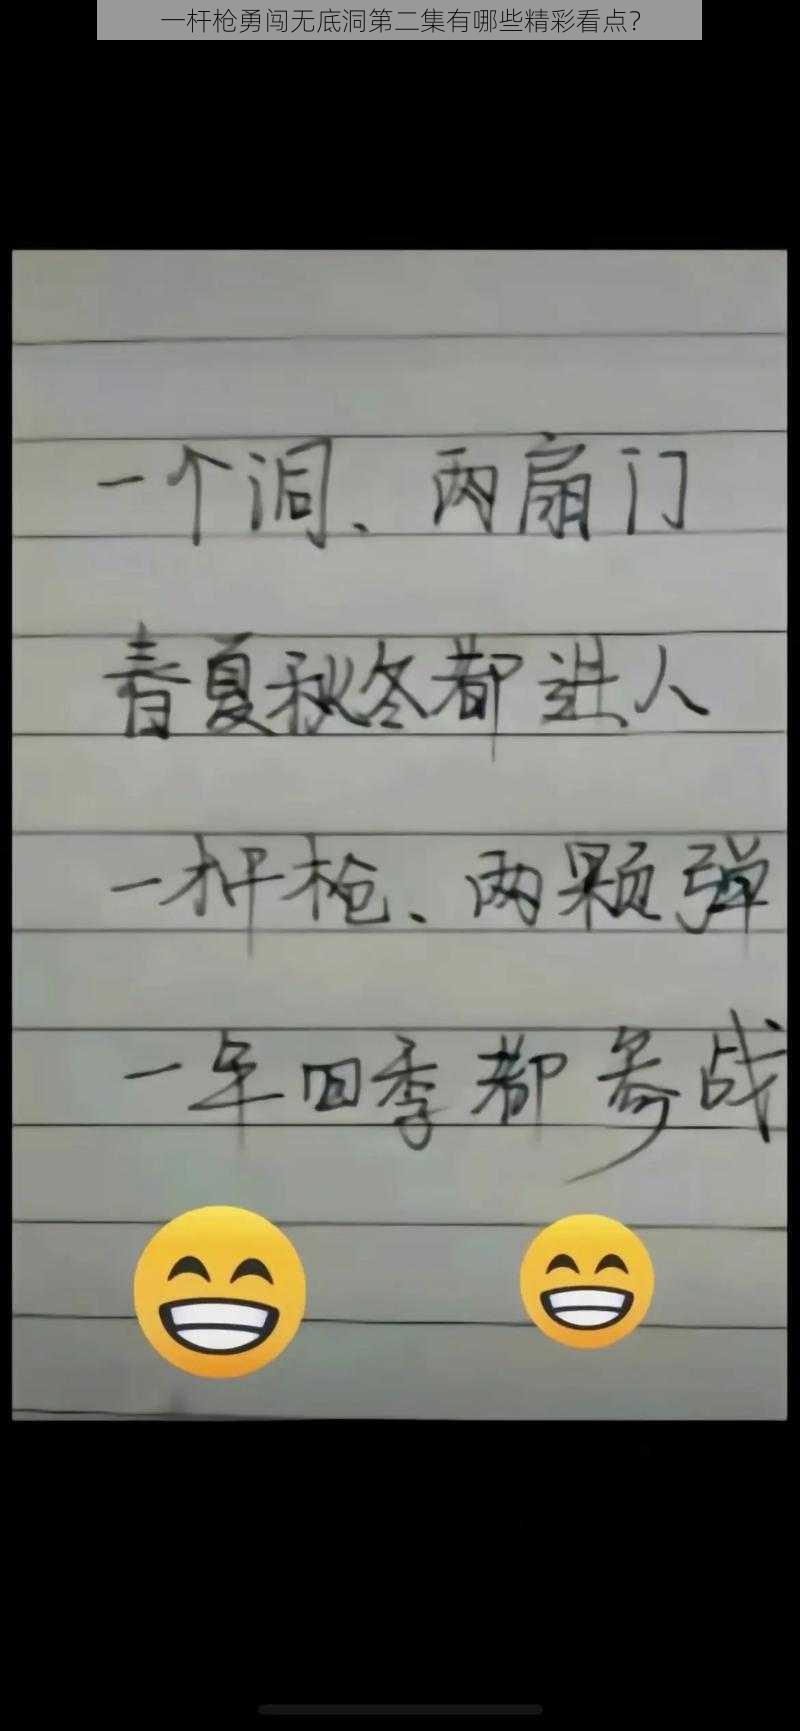 一杆枪勇闯无底洞第二集有哪些精彩看点？
一个洞、两扇门
春夏秋冬都进人
一杆枪、两颗弹
一年四季都参战